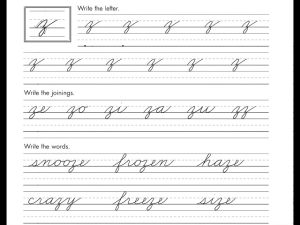 z Write the letter.
z z z z z z
z z z z z z z
Write the joinings.
ze zo zi za zu zz
Write the words.
snooze frozen haze
crazy freeze size